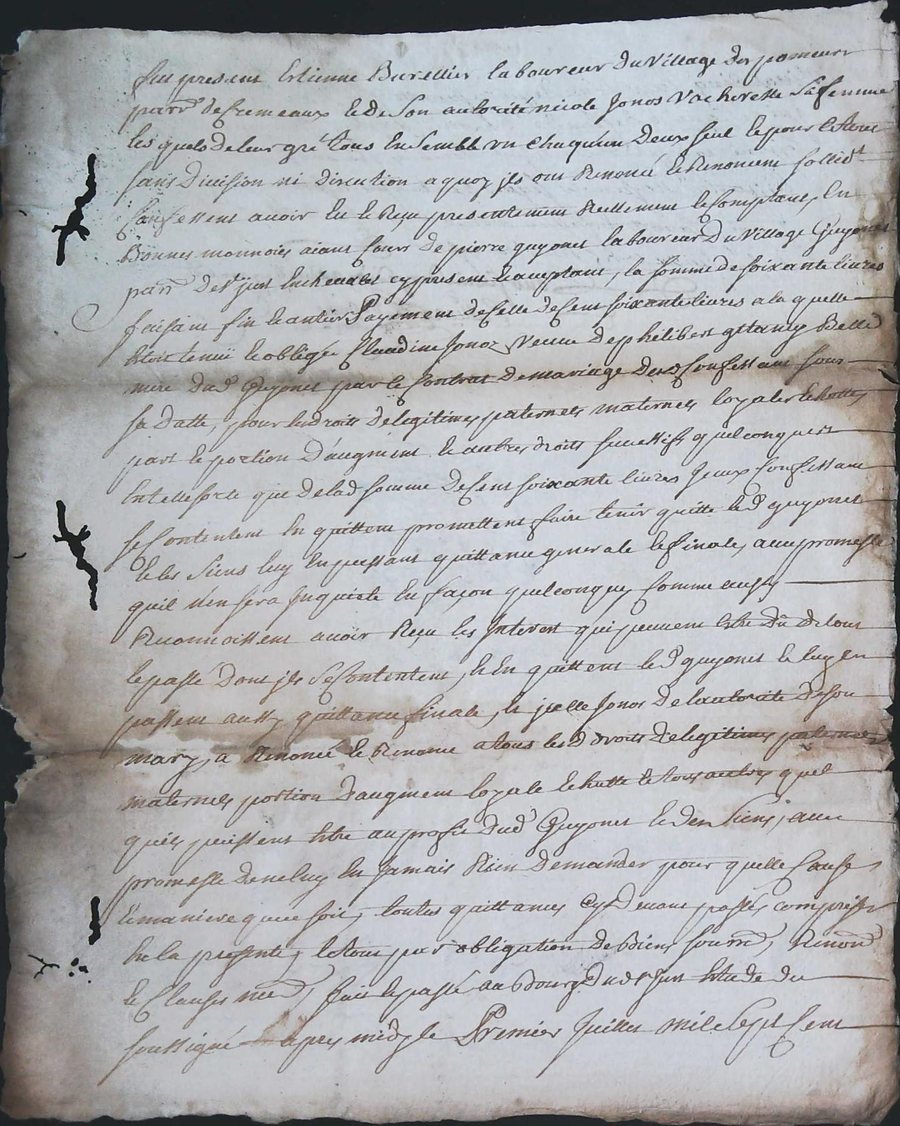 fut present Estienne Burellier laboureur du Village des pomeurs
parr^e de Cremeaux le de son autorité nicole Jonos Vacheresse sa femme
les quels de leur gré tous ensemble un chaqu'un deux seul le pour le tout
sans division ni discution a quoy jls ont Renoncé le Renoncent sollid^t
Confessent avoir Eu le Reçu presentement Reellement le Comptant, En
Bonnes monnoies aiant Cours de pierre guyonet laboureur du Village Guyonet
parr^e de s^t just En chevalet cy present le acceptant, la somme de soixante livres
faisant fin le antier Payement de Celle de Cent soixante livres a la quelle
Etoit tenue le obligée Claudine Jonos Veuve de philibert Belle
mere dud^t Guyonet par le Contrat de mariage desd^s Confessant sous
sa datte, pour les droits de legitimes paternels maternels loyales
part le portion D'augment le autres droits successifs quelconques
En telle sorte que de lad^e somme de Cent soixante livres jceux Confessant
se Contentent En quittent promettent faire tenir quitte led^t guyonet
le les siens luy En passant quittance generale le finale, avec promesse
quil n'en sera Inquieté En façon quelconque, Comme aussy
Reconnoissent avoir Reçu les Interest qui peuvent Etre dû de tout
le passé dont jls se Contentent, le En quittent led^t guyonet le luy en
passent aussy quittance finale, le jcelle Jonos de l'autorité de son
mary, a Renoncé le Renonce a tous lesd^s droits de legitimes paternels
maternels portion d'augment loyale le tous autres quel
qu'ils puissent Etre au profit dud^t Guyonet le des siens, avec
promesse de ne luy En Jamais Rien demander pour quelle Cause
le maniere que ce soit, toutes quittances cyd^t evant passés Comprises
En la presente, le tous par obligation de Biens soum^s, Renon^s
le Clauses nec^s, fait le passé au Bourg dud^t s^t Just Etude du
soussigné apres midy le Premier Juillet mil sept Cent